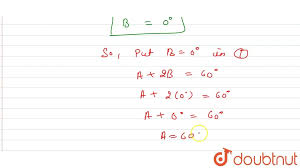 B = 0°
So, Put B = 0° in ①
A + 2B = 60°
A + 2(0°) = 60°
A + 0° = 60°
A = 60°
doubtnut